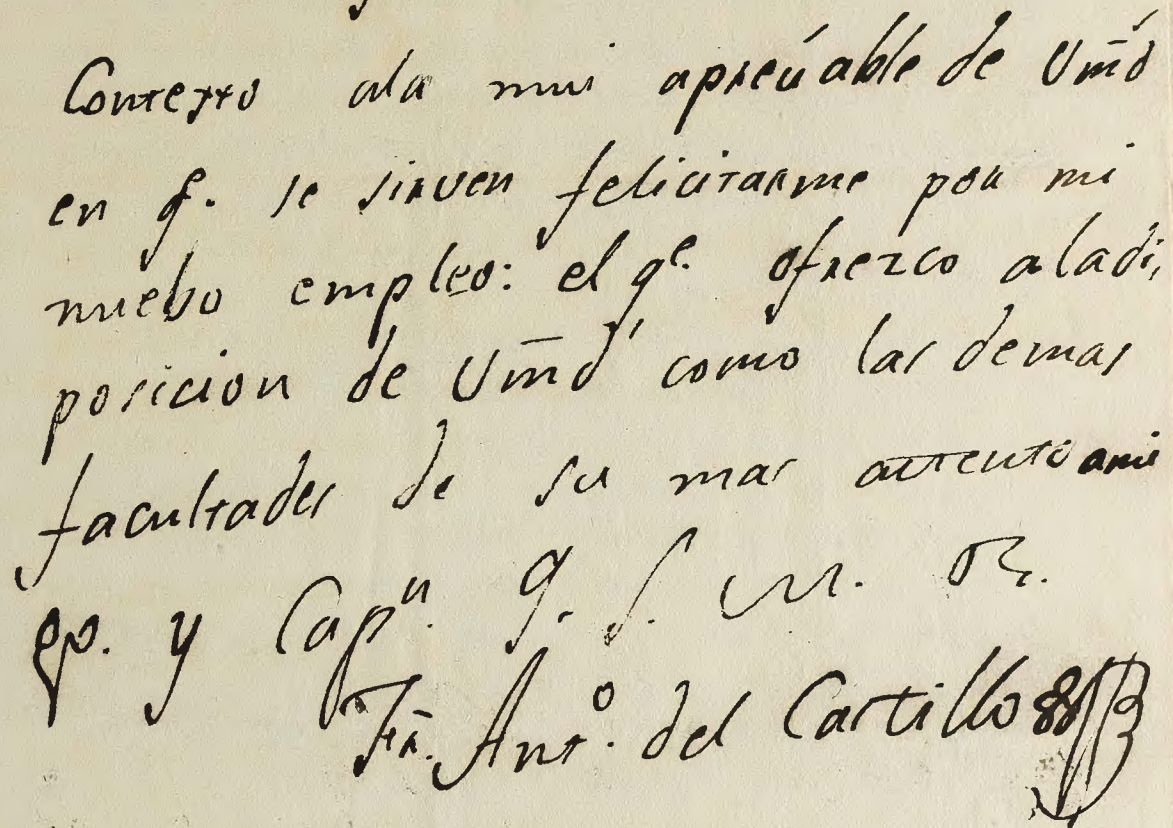 Contesto ala mui apreciable de Umd
en q. se sirven felicitarme por mi
nuebo empleo: el qe. ofrezco a ladis
posicion de Umd como las demas
facultades de su mas attento ami
go. y Capn. q. S. M. B.
Fr. Anto. del Castillo